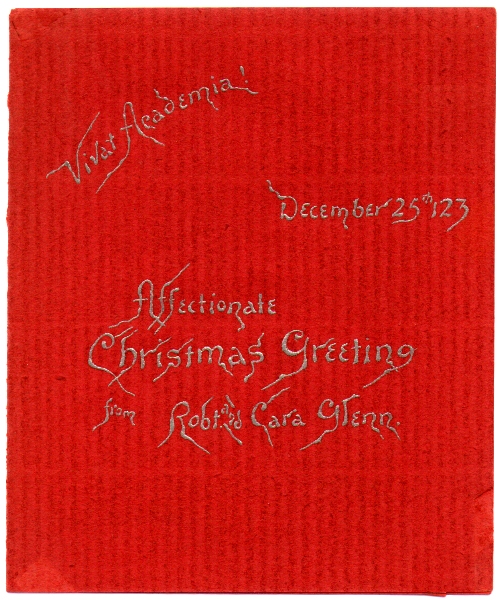 Vivat Academia!
December 25th 123
Affectionate
Christmas Greeting
from Robt. and Cara Glenn.